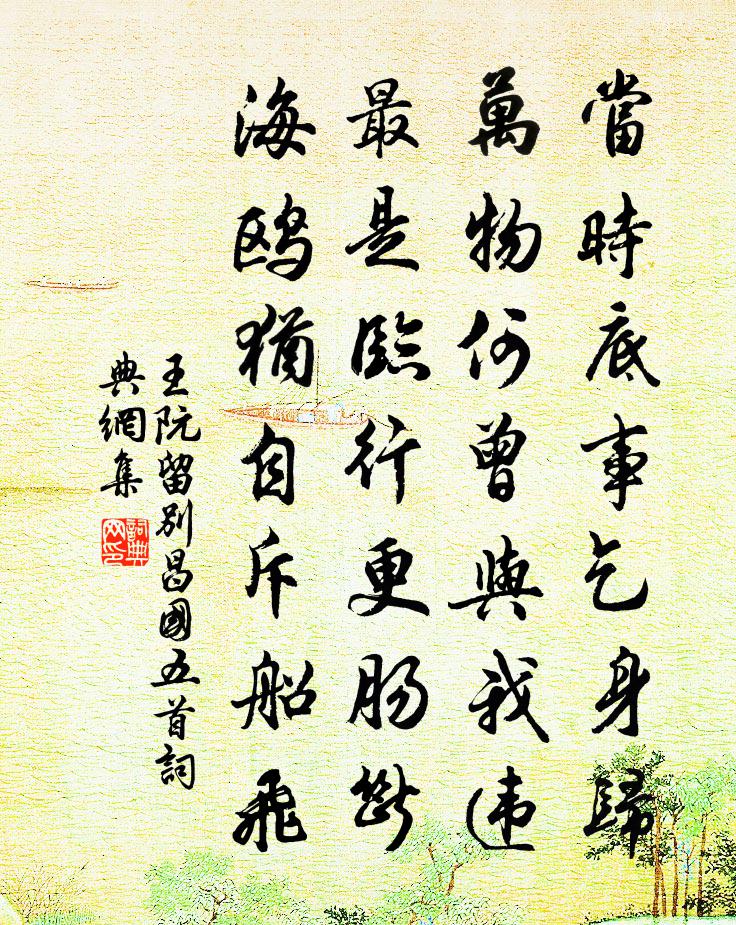 當時底事乞身歸
萬物何曾與我違
最是臨行更腸斷
海鷗猶自斥船飛
王阮留別昌國五首詞
典網集
詞典
网印